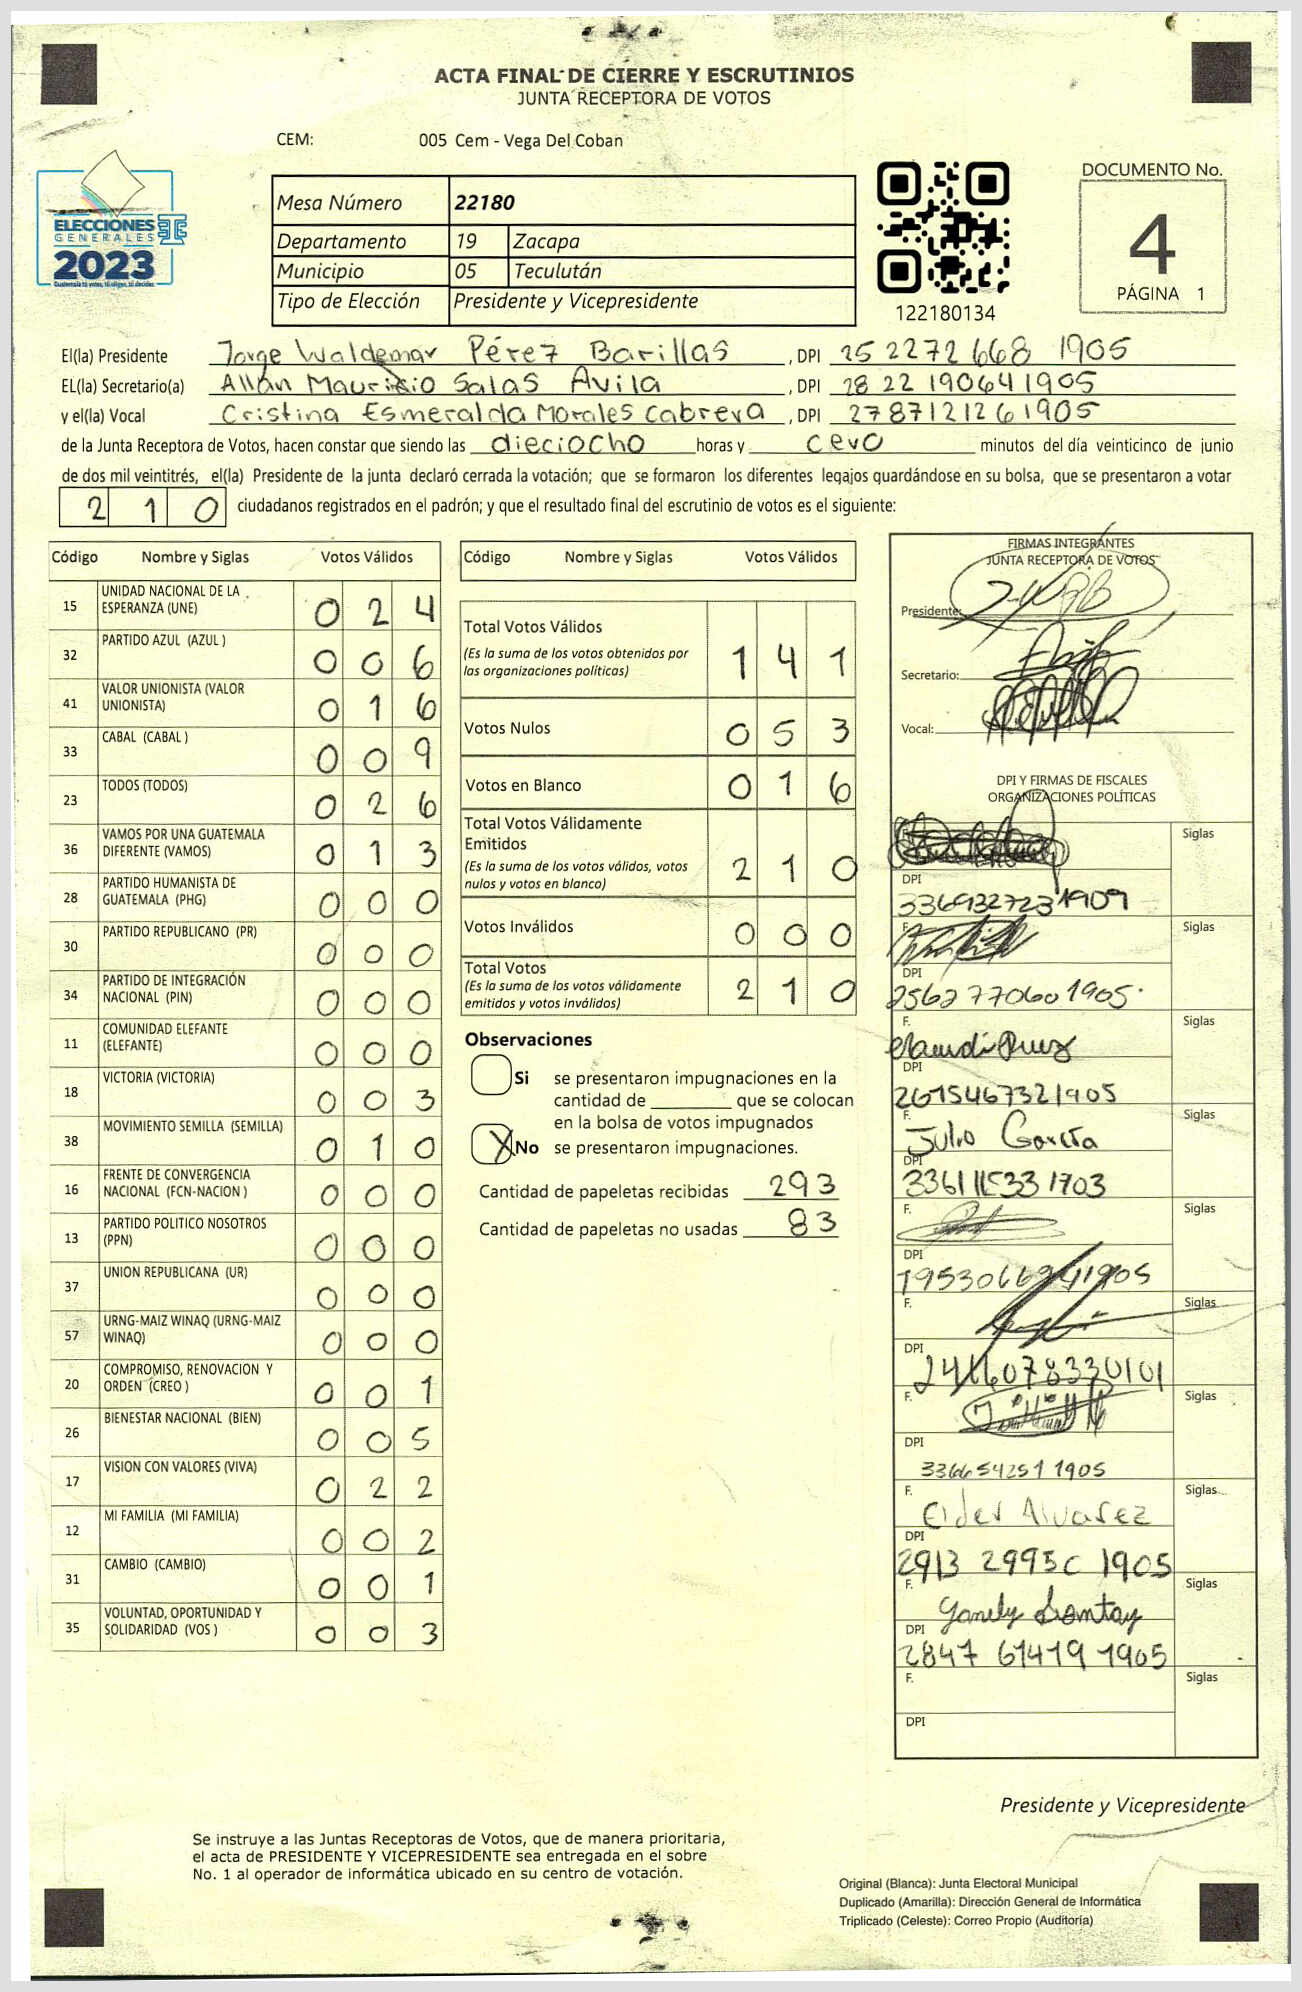 ACTA FINAL DE CIERRE Y ESCRUTINIOS
JUNTA RECEPTORA DE VOTOS
CEM: 005 Cem - Vega Del Coban
ELECCIONES
GENERALES
2023
Guatemala tú votas, tú eliges, tú decides
Mesa Número 22180
Departamento 19 Zacapa
Municipio 05 Teculután
Tipo de Elección Presidente y Vicepresidente
122180134
DOCUMENTO No.
4
PÁGINA 1
El(la) Presidente Jorge Waldemar Pérez Barillas , DPI 25 2272 668 1905
EL(la) Secretario(a) Allan Mauricio Salas Avila , DPI 28 22 190641905
y el(la) Vocal Cristina Esmeralda Morales Cabrera , DPI 2787121261905
de la Junta Receptora de Votos, hacen constar que siendo las dieciocho horas y cero minutos del día veinticinco de junio
de dos mil veintitrés, el(la) Presidente de la junta declaró cerrada la votación; que se formaron los diferentes legajos guardándose en su bolsa, que se presentaron a votar
2 1 0 ciudadanos registrados en el padrón; y que el resultado final del escrutinio de votos es el siguiente:
Código Nombre y Siglas Votos Válidos
15 UNIDAD NACIONAL DE LA ESPERANZA (UNE) 0 2 4
32 PARTIDO AZUL (AZUL ) 0 0 6
41 VALOR UNIONISTA (VALOR UNIONISTA) 0 1 6
33 CABAL (CABAL ) 0 0 9
23 TODOS (TODOS) 0 2 6
36 VAMOS POR UNA GUATEMALA DIFERENTE (VAMOS) 0 1 3
28 PARTIDO HUMANISTA DE GUATEMALA (PHG) 0 0 0
30 PARTIDO REPUBLICANO (PR) 0 0 0
34 PARTIDO DE INTEGRACIÓN NACIONAL (PIN) 0 0 0
11 COMUNIDAD ELEFANTE (ELEFANTE) 0 0 0
18 VICTORIA (VICTORIA) 0 0 3
38 MOVIMIENTO SEMILLA (SEMILLA) 0 1 0
16 FRENTE DE CONVERGENCIA NACIONAL (FCN-NACION ) 0 0 0
13 PARTIDO POLITICO NOSOTROS (PPN) 0 0 0
37 UNION REPUBLICANA (UR) 0 0 0
57 URNG-MAIZ WINAQ (URNG-MAIZ WINAQ) 0 0 0
20 COMPROMISO, RENOVACION Y ORDEN (CREO ) 0 0 1
26 BIENESTAR NACIONAL (BIEN) 0 0 5
17 VISION CON VALORES (VIVA) 0 2 2
12 MI FAMILIA (MI FAMILIA) 0 0 2
31 CAMBIO (CAMBIO) 0 0 1
35 VOLUNTAD, OPORTUNIDAD Y SOLIDARIDAD (VOS ) 0 0 3
Código Nombre y Siglas Votos Válidos
Total Votos Válidos 1 4 1
(Es la suma de los votos obtenidos por
las organizaciones políticas)
Votos Nulos 0 5 3
Votos en Blanco 0 1 6
Total Votos Válidamente
Emitidos 2 1 0
(Es la suma de los votos válidos, votos
nulos y votos en blanco)
Votos Inválidos 0 0 0
Total Votos 2 1 0
(Es la suma de los votos válidamente
emitidos y votos inválidos)
Observaciones
Si se presentaron impugnaciones en la
cantidad de que se colocan
en la bolsa de votos impugnados
X No se presentaron impugnaciones.
Cantidad de papeletas recibidas 293
Cantidad de papeletas no usadas 83
FIRMAS INTEGRANTES
JUNTA RECEPTORA DE VOTOS
Presidente:
Secretario:
Vocal:
DPI Y FIRMAS DE FISCALES
ORGANIZACIONES POLÍTICAS
F. Siglas
DPI
3369327231909
F. Siglas
DPI
2562770601905
F. Siglas
DPI
2675467321905
F. Julio García Siglas
DPI
F. Siglas
DPI
F. Siglas
DPI
2416078330101
F. Siglas
DPI
3366542511905
F. Elder Alvarez Siglas
DPI
2913 2995C 1905
F. Siglas
DPI
2847 61419 1905
F. Siglas
DPI
Presidente y Vicepresidente
Se instruye a las Juntas Receptoras de Votos, que de manera prioritaria,
el acta de PRESIDENTE Y VICEPRESIDENTE sea entregada en el sobre
No. 1 al operador de informática ubicado en su centro de votación.
Original (Blanca): Junta Electoral Municipal
Duplicado (Amarilla): Dirección General de Informática
Triplicado (Celeste): Correo Propio (Auditoría)